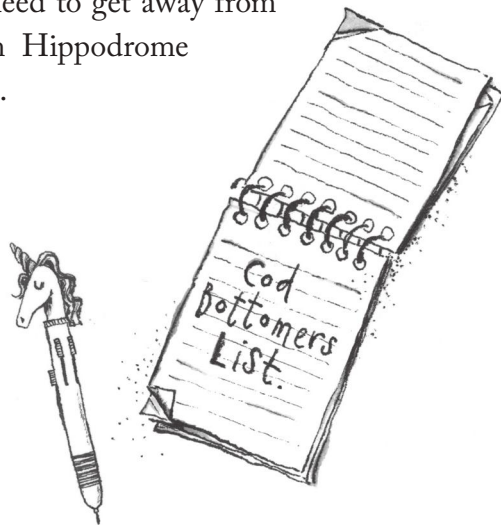 need to get away from
Hippodrome
.
Cod
Bottomers
List.